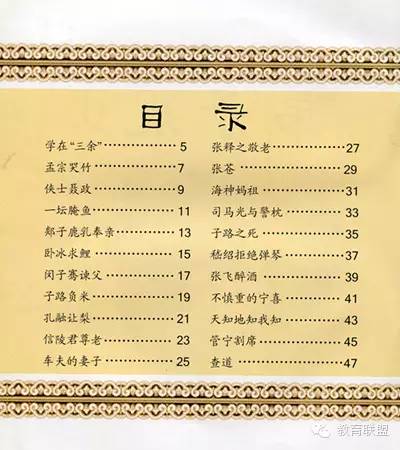 目 录
学在“三余”………………5
孟宗哭竹………………7
侠士聂政………………9
一坛腌鱼………………11
郯子鹿乳奉亲…………13
卧冰求鲤………………15
闵子骞谏父……………17
子路负米………………19
孔融让梨………………21
信陵君尊老……………23
车夫的妻子……………25
张释之敬老……………27
张苍……………………29
海神妈祖………………31
司马光与警枕…………33
子路之死………………35
嵇绍拒绝弹琴…………37
张飞醉酒………………39
不慎重的宁喜…………41
天知地知我知…………43
管宁割席………………45
查道……………………47
教育联盟